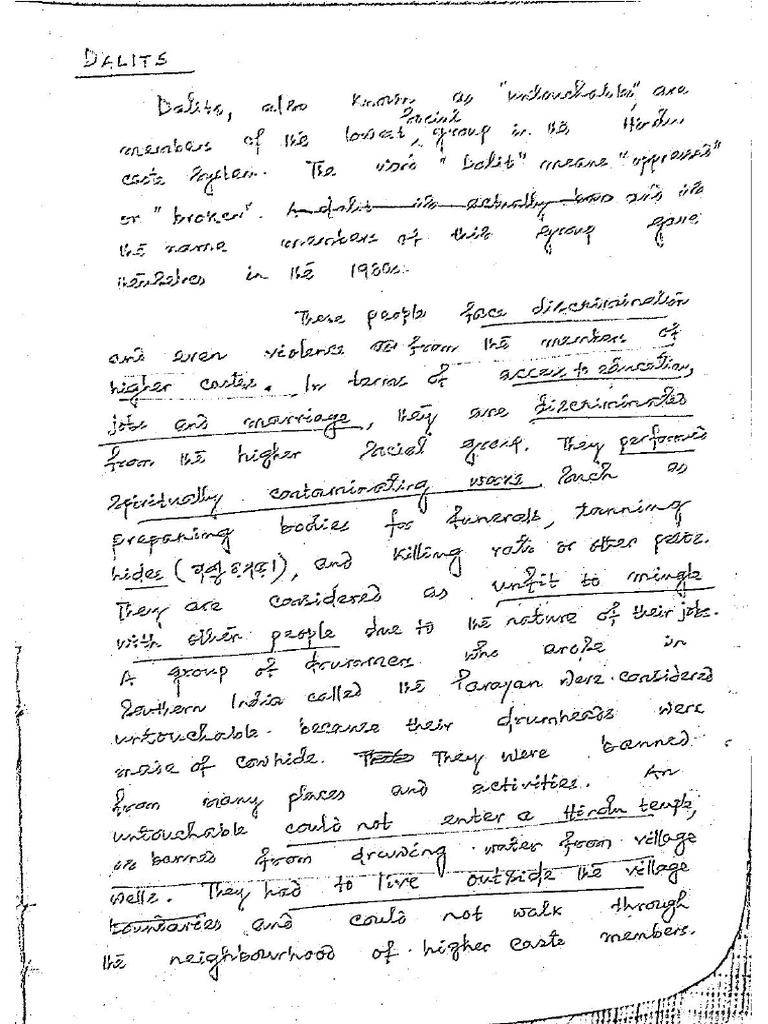 DALITS
Dalits, also known as "untouchables", are
members of the lowest social group in the Hindu
caste system. The word "Dalit" means "oppressed"
or "broken". A dalit is actually born and is
the name members of this group gave
themselves in the 1930s.
These people face discrimination
and even violence from the members of
higher castes. In terms of access to education,
jobs and marriage, they are discriminated
from the higher social group. They performed
spiritually contaminating works such as
preparing bodies for funerals, tanning
hides ( ), and killing rats or other pests.
They are considered as unfit to mingle
with other people due to the nature of their jobs.
A group of drummers who arose in
Southern India called the Parayan were considered
untouchable because their drumheads were
made of cowhide. They were banned
from many places and activities. An
untouchable could not enter a Hindu temple,
is banned from drawing water from village
wells. They had to live outside the village
boundaries and could not walk through
the neighbourhood of higher caste members.